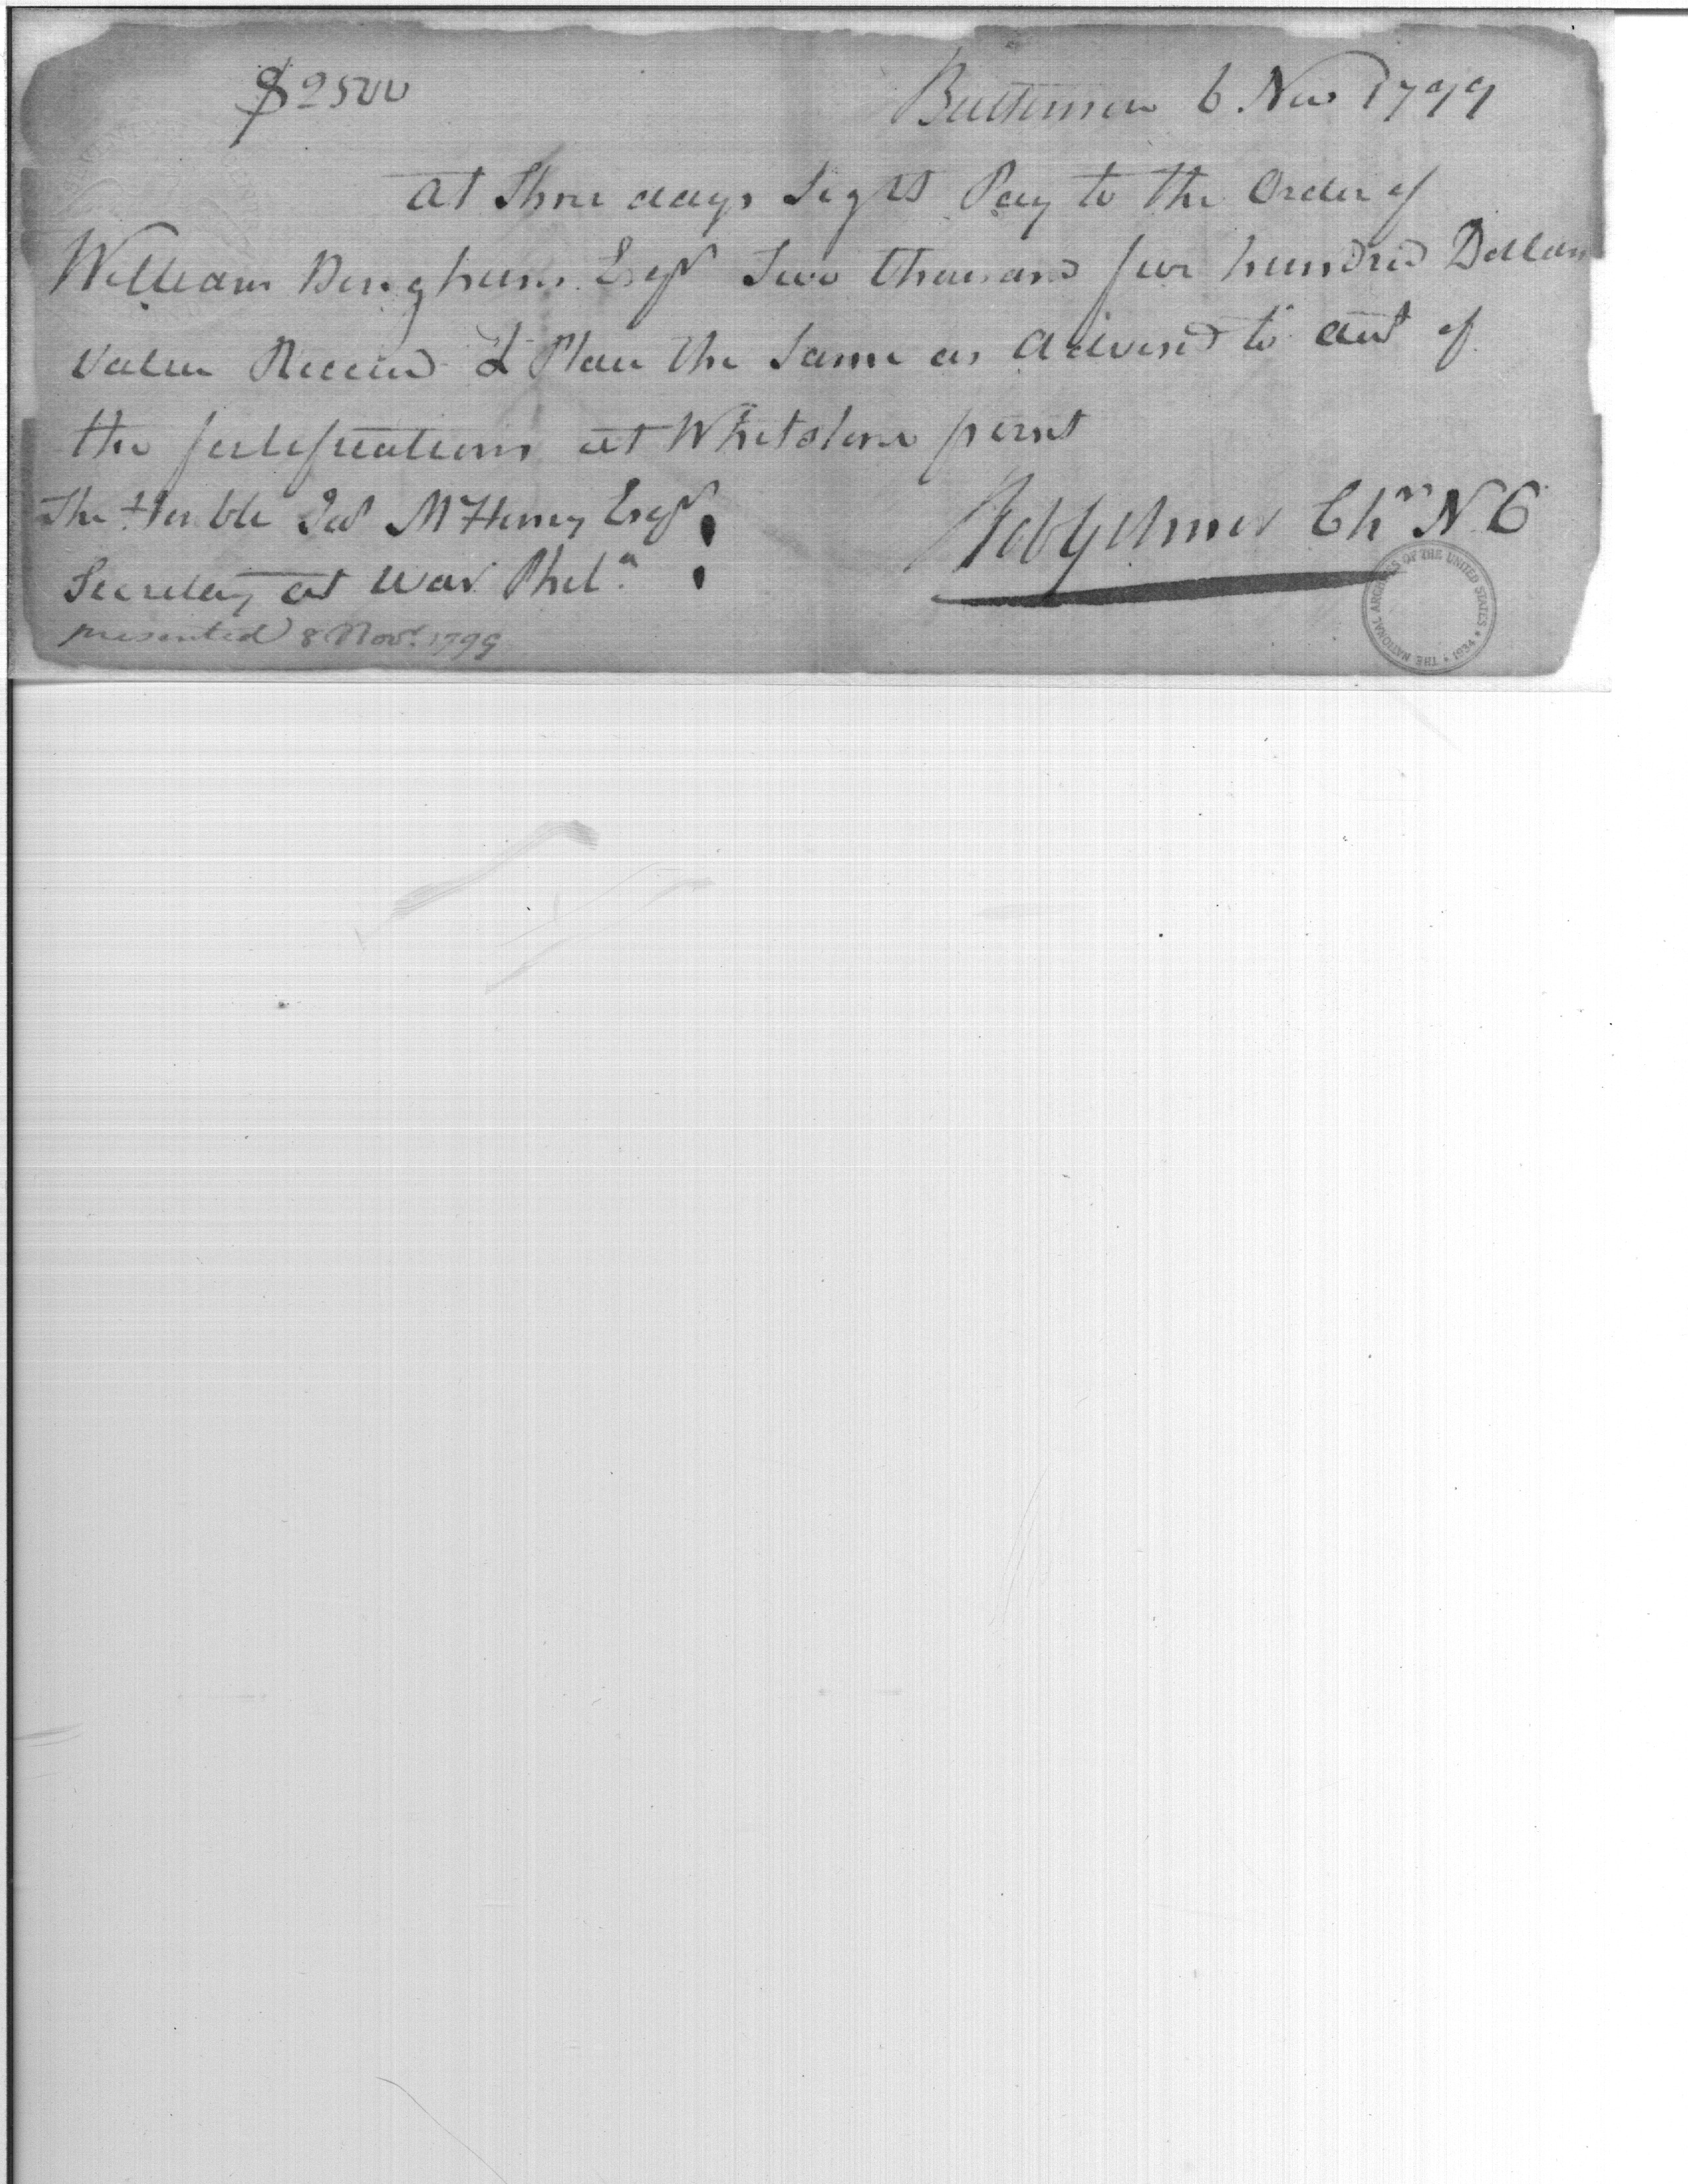 $2500 Baltimore 6. Nov 1799
At Three days Sight Pay to the Order of
William Bingham Esqr Two thousand five hundred Dollars
Value Received & Place the Same as advised to acct of
the fortifications at Whetstone point
The Honble Jas McHenry Esqr
Secretary at War Phila.
Robt Gilmor Chn N C
presented 8 Novr. 1799
THE NATIONAL ARCHIVES OF THE UNITED STATES * 1934 *